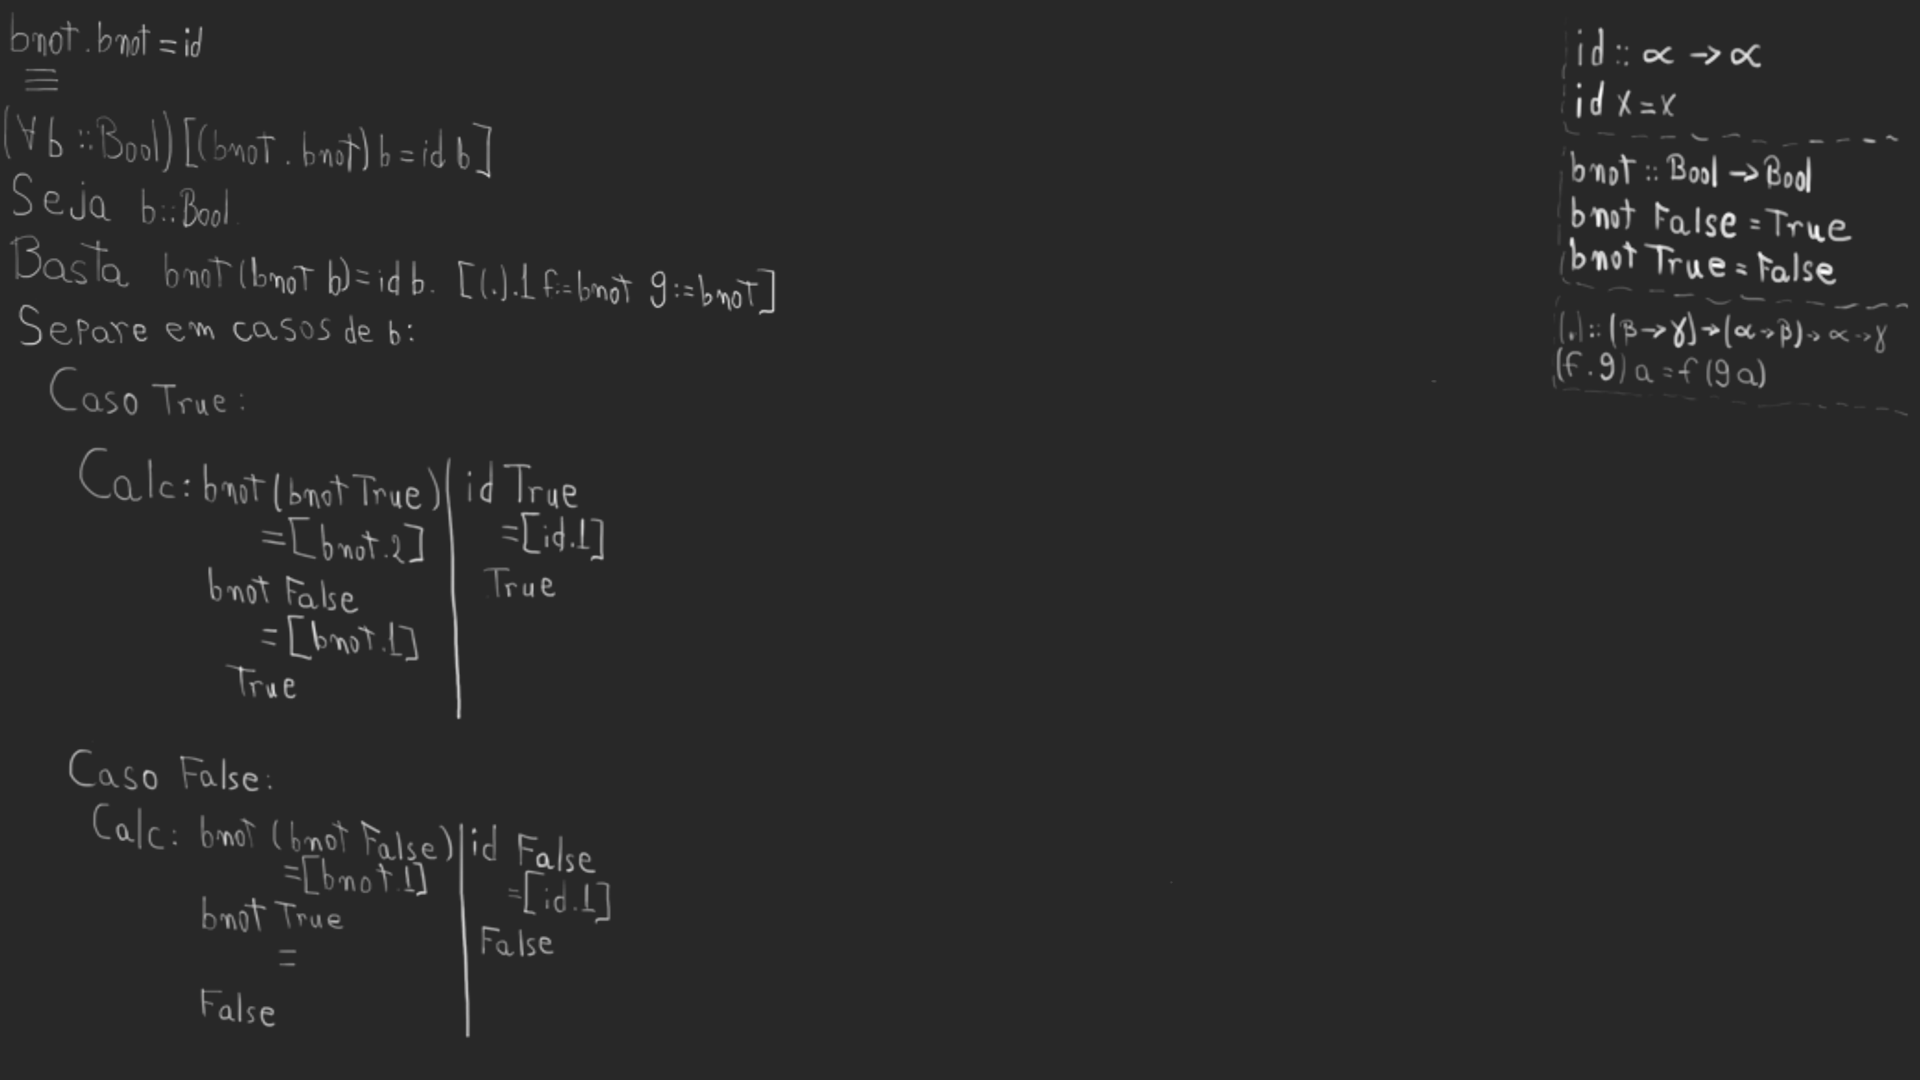 bnot.bnot = id
≡
(∀b::Bool)[(bnot.bnot) b = id b]
Seja b::Bool.
Basta bnot(bnot b) = id b. [(.).1 f:=bnot g:=bnot]
Separe em casos de b:
Caso True:
Calc: bnot(bnot True) | id True
=[bnot.2] | =[id.1]
bnot False | True
=[bnot.1]
True
Caso False:
Calc: bnot (bnot False) | id False
=[bnot.1] | =[id.1]
bnot True | False
=
False
id :: α → α
id x = x
bnot :: Bool → Bool
bnot False = True
bnot True = False
(.) :: (β → γ) → (α → β) → α → γ
(f . g) a = f (g a)